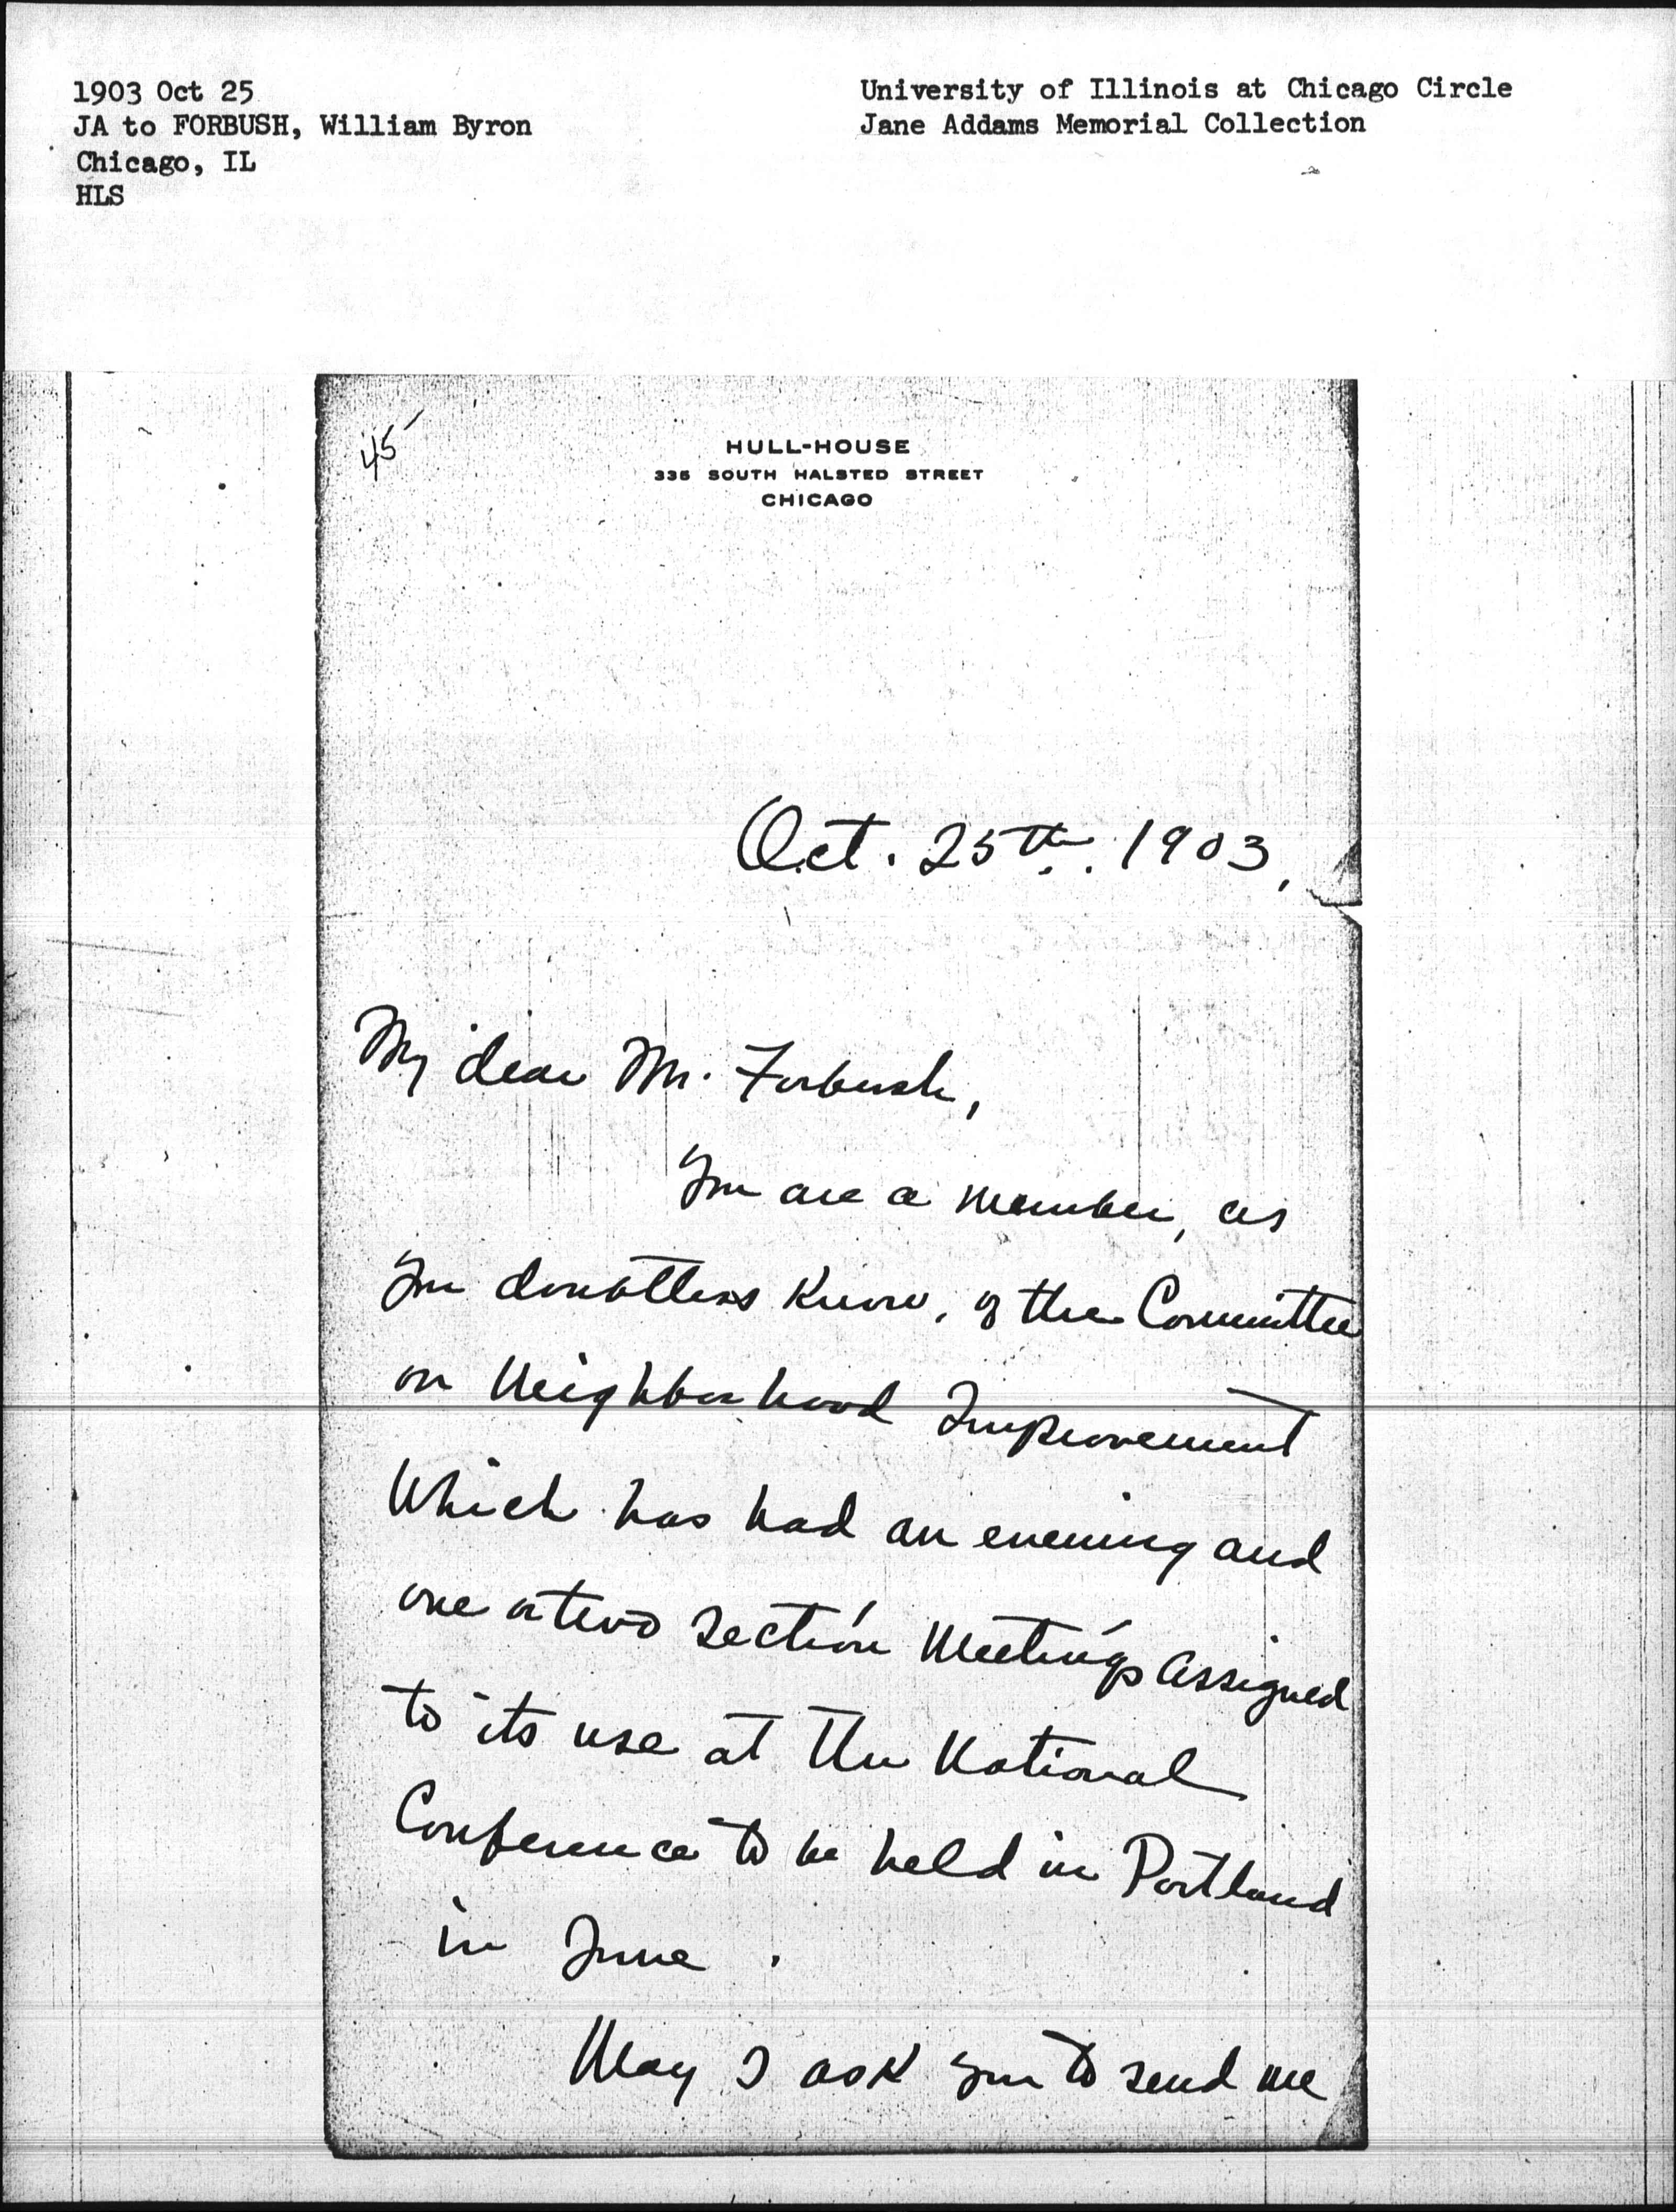 1903 Oct 25
JA to FORBUSH, William Byron
Chicago, IL
HLS
University of Illinois at Chicago Circle
Jane Addams Memorial Collection
45
HULL-HOUSE
335 SOUTH HALSTED STREET
CHICAGO
Oct. 25th. 1903,
My dear Mr. Forbush,
You are a member, as
you doubtless know, of the Committee
on Neighborhood Improvement
which has had an evening and
one or two section meetings assigned
to its use at the National
Conference to be held in Portland
in June.
May I ask you to send me